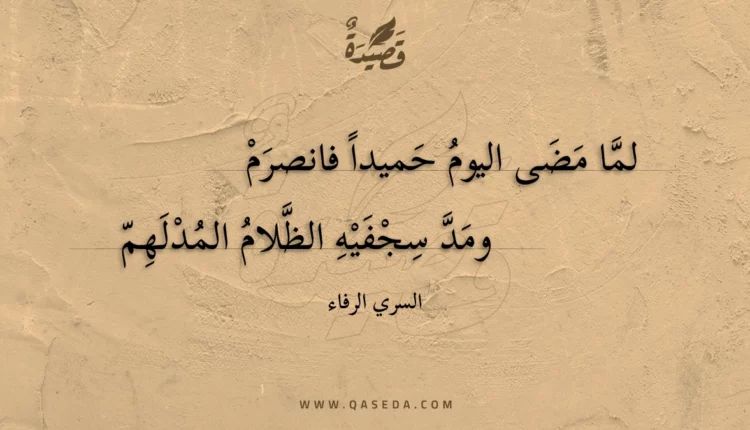 قَصِيدَةٌ
لمَّا مَضَى اليومُ حَميداً فانصرَمْ
ومَدَّ سِجْفَيْهِ الظَّلامُ المُدْلَهِمّ
السري الرفاء
WWW.QASEDA.COM